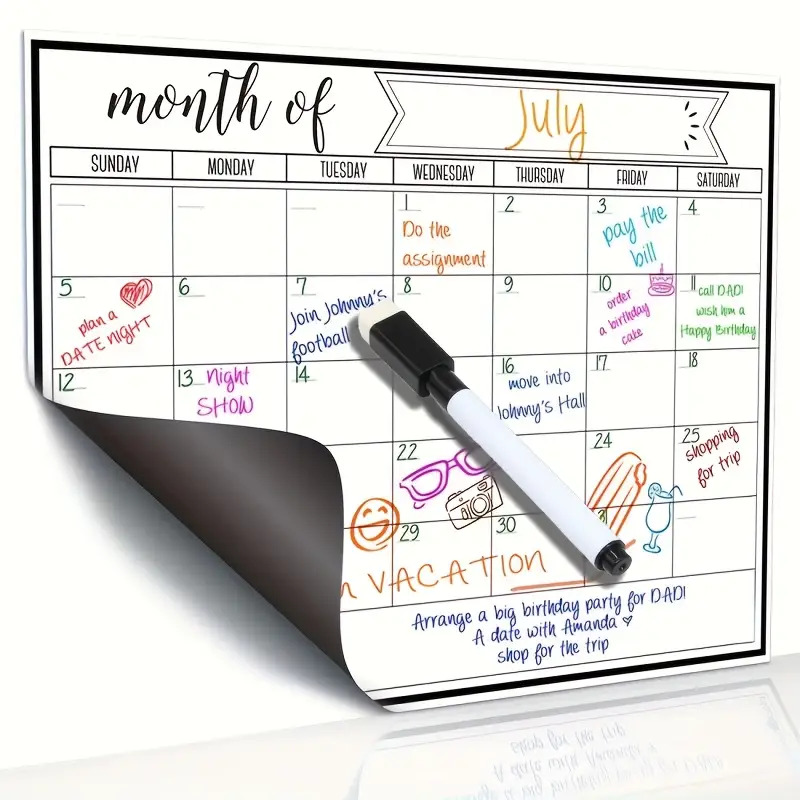 month of July
SUNDAY MONDAY TUESDAY WEDNESDAY THURSDAY FRIDAY SATURDAY
1 2 3 4
Do the
assignment
pay the
bill
5 6 7 8 9 10 11
plan a
DATE NIGHT
Join Johnny's
football
order
a birthday
cake
call DAD!
wish him a
Happy Birthday
12 13 14 16 17 18
Night
SHOW
move into
Johnny's Hall
22 24 25
shopping
for trip
29 30
VACATION
Arrange a big birthday party for DAD!
A date with Amanda
shop for the trip